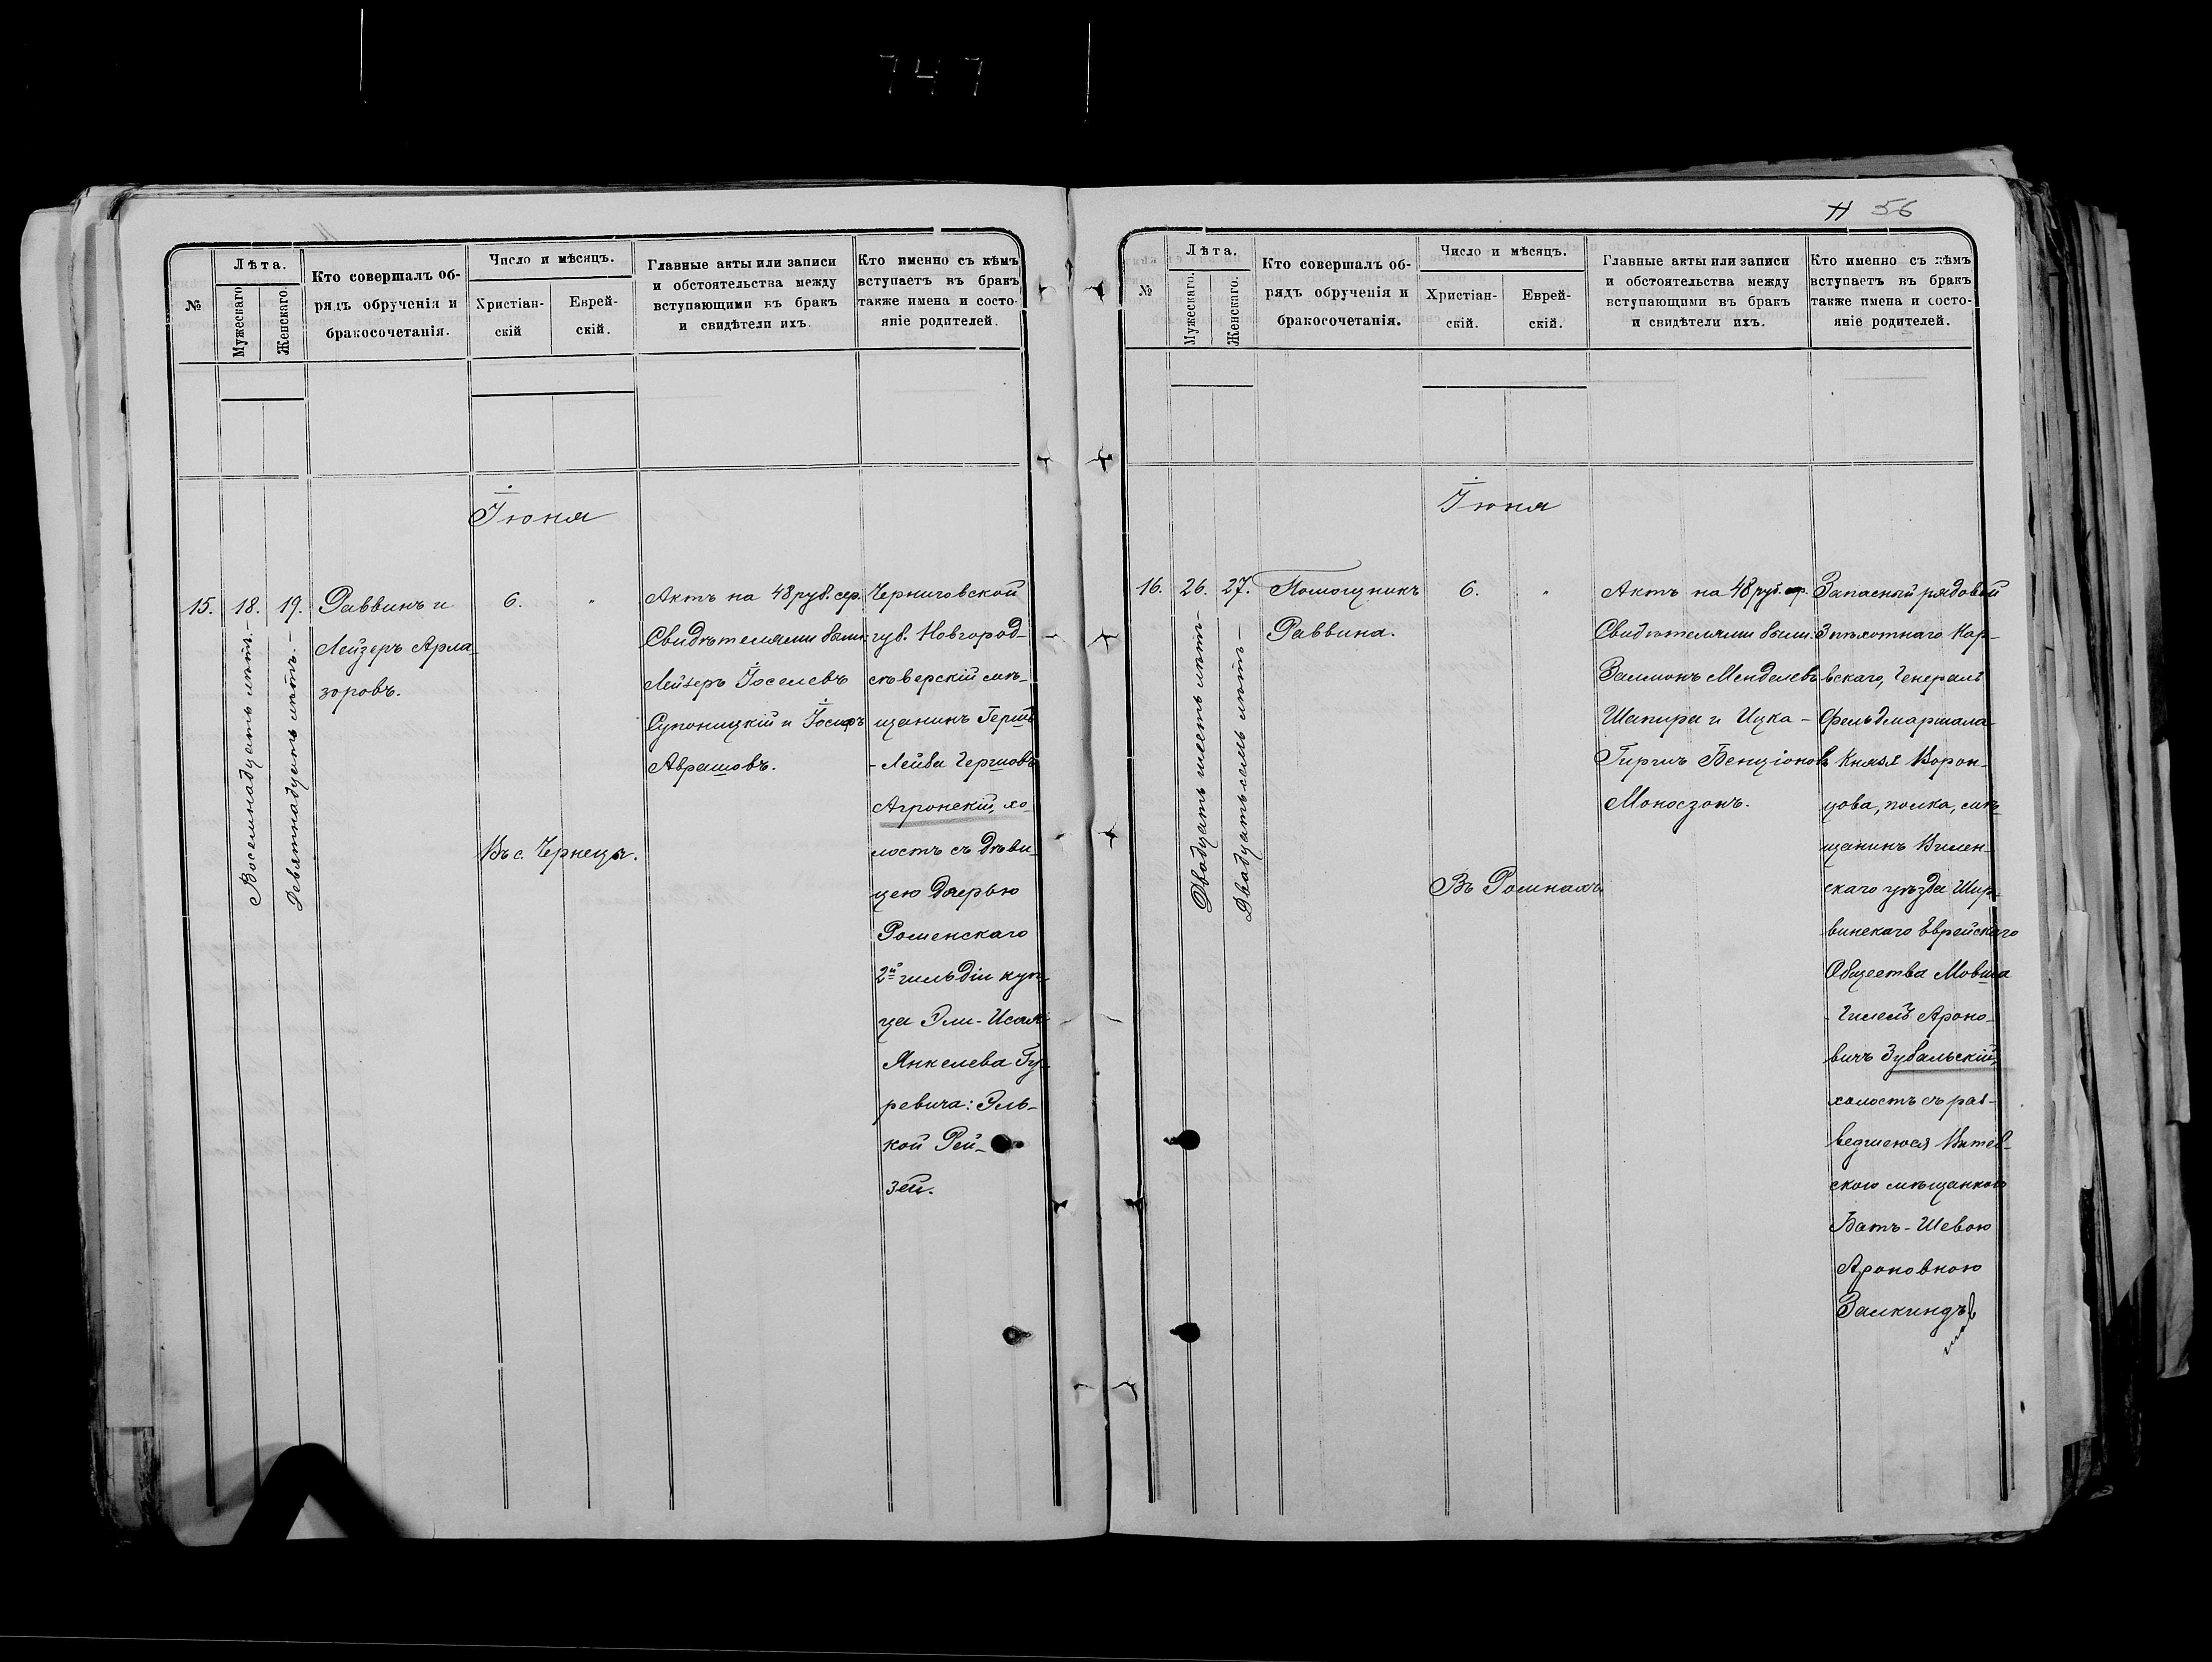 747
№
Лѣта.
Мужескаго
Женскаго.
Кто совершалъ об-
рядъ обрученія и
бракосочетанія.
Число и мѣсяцъ.
Христіан-
скій
Еврей-
скій.
Главные акты или записи
и обстоятельства между
вступающими въ бракъ
и свидѣтели ихъ.
Кто именно съ кѣмъ
вступаетъ въ бракъ
также имена и состо-
яніе родителей.
Іюня
15.
18.
Восемнадцать лѣтъ.-
19.
Девятнадцать лѣтъ.-
Раввинъ и
Лейзеръ Арла-
зоровъ.
6.
"
Въ с. Чернеча.
Актъ на 48 руб. сер.
Свидѣтелями были:
Лейзеръ Іоселевъ
Супоницкій и Іосифъ
Аврашовъ.
Черниговской
губ. Новгород-
сѣверскій мѣ-
щанинъ Гершъ
-Лейба Гершовъ
Агронскій, хо-
лостъ съ дѣви-
цею дочерью
Роменскаго
2й гильдіи куп-
ца Эли-Исаака
Янкелева Гу-
ревича: Эль-
кой Рей-
зей.
56
№
Лѣта.
Мужескаго.
Женскаго.
Кто совершалъ об-
рядъ обрученія и
бракосочетанія.
Число и мѣсяцъ.
Христіан-
скій.
Еврей-
скій.
Главные акты или записи
и обстоятельства между
вступающими въ бракъ
и свидѣтели ихъ.
Кто именно съ кѣмъ
вступаетъ въ бракъ
также имена и состо-
яніе родителей.
Іюня
16.
26.
Двадцать шесть лѣтъ-
27.
Двадцать семь лѣтъ-
Помощникъ
Раввина.
6.
"
Въ Ромнахъ
Актъ на 48 руб. сер.
Свидѣтелями были:
Залмонъ Менделевъ
Шапира и Ицка-
Гиршъ Бенціоновъ
Моносзонъ.
Запасный рядовой
3 пѣхотнаго Нар-
вскаго, Генералъ
Фельдмаршала
Князя Ворон-
цова, полка, мѣ-
щанинъ Вилен-
скаго уѣзда Шир-
винскаго Еврейскаго
Общества Мовша
-Гилель Ароно-
вичъ Зубальскій,
холостъ съ раз-
ведшеюся Витеб-
скою мѣщанкою
Батъ-Шевою
Ароновною
Залкиндъ